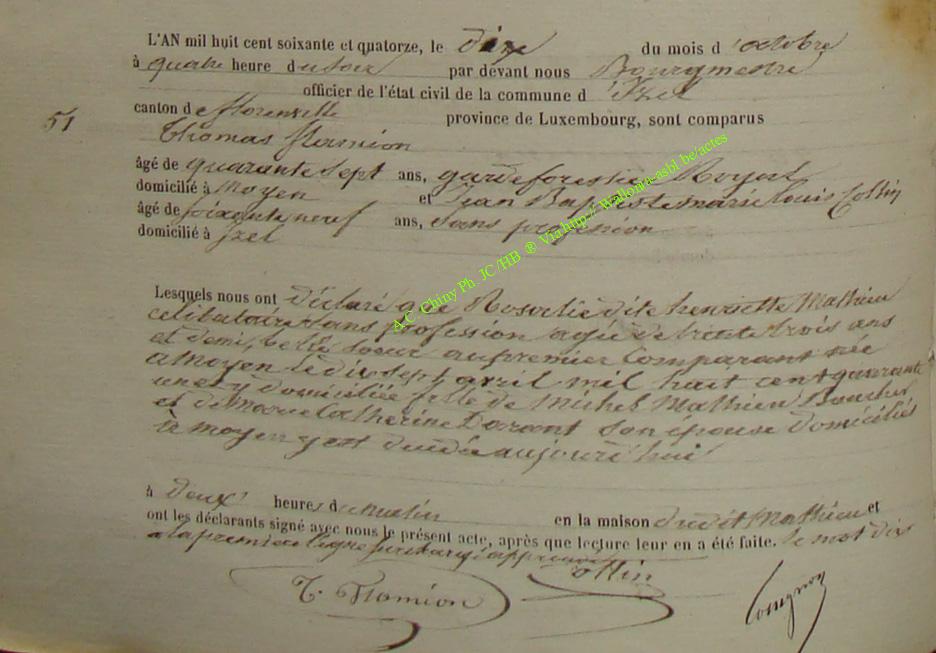 L'AN mil huit cent soixante et quatorze, le dix du mois d'octobre
à quatre heure du soir par devant nous Bourgmestre
officier de l'état civil de la commune d'Izel
51
canton de florenville province de Luxembourg, sont comparus
Thomas flamion
âgé de quarante sept ans, garde forestier Royal
domicilié à Moyen et Jean Baptiste marie louis Collin
âgé de soixante neuf ans, sans profession
domicilié à Izel
A.C. Chiny Ph. JC /HB ® Via http:// Wallonia-asbl.be/actes
Lesquels nous ont déclaré que Rosalie dite henriette Mathieu
celibataire sans profession agée de trente trois ans
et demi, belle soeur au premier comparant née
a Moyen le dix sept avril mil huit cent quarante
un et y domiciliée fille de Michel Mathieu Boucher
et de Marie Catherine son épouse domiciliés
à moyen y est décédée aujourd'hui
à deux heures du matin en la maison dudit Mathieu et
ont les déclarants signé avec nous le présent acte, après que lecture leur en a été faite. le mot dix
a la premiere ligne approuvé
T. Flamion Collin